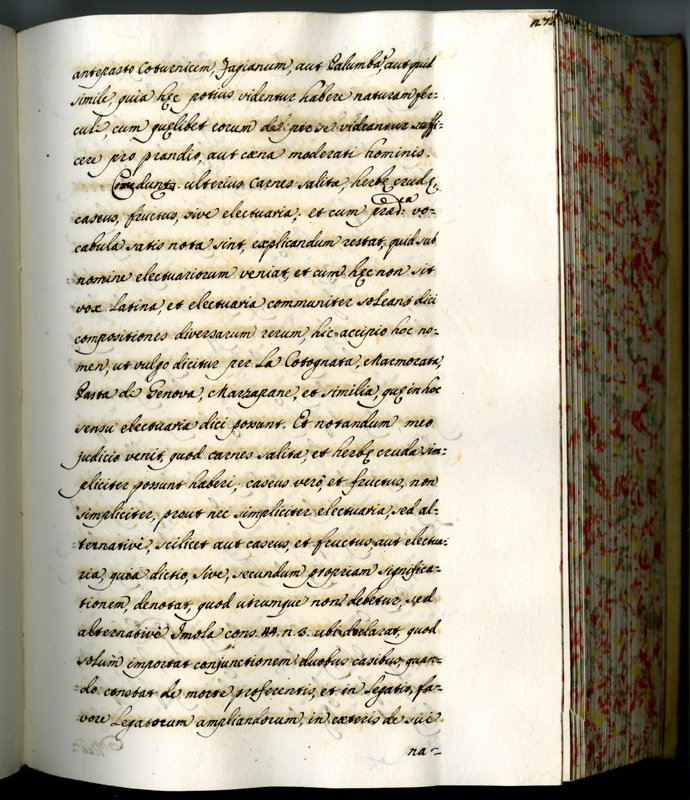 antepasto coturnicem, Fagianum, aut Palumbã, aut quid
simile, quia hęc potius videntur habere naturam fer-
culi, cum quęlibet eorum de per se videantur suffi-
cere pro prandio, aut cæna moderati hominis.
ulterius Carnes salita, herbę crudę,
caseus, fructus, sive electuaria; et cum præd.ca vo-
cabula satis nota sint, explicandum restat, quid sub
nomine electuariorum veniat, et cum hęc non sit
vox Latina, et electuaria communiter soleant dici
compositiones diversarum rerum, hic accipio hoc no-
men, ut vulgo dicitur per La Cotognata, Marmorata,
Pasta de Genova, Marzapane, et similia, quę in hoc
sensu electuaria dici possunt. Et notandum meo
judicio venit, quod carnes salita, et herbę cruda sim-
pliciter possunt haberi; caseus verò, et fructus, non
simpliciter, prout nec simpliciter electuaria, sed al-
ternativè, scilicet aut caseus, et fructus, aut electua-
ria, quia dictio, sive, secundum propriam significa-
tionem, denotat, quod utrumque non debetur, sed
alternativè Imola cons. 44. n. 3. ubi declarat, quod
solum importat conjunctionem duobus casibus, quan-
do constat de morte proferentis, et in legatis, fa-
vore Legatorum ampliandorum, in cæteris de sui
na-